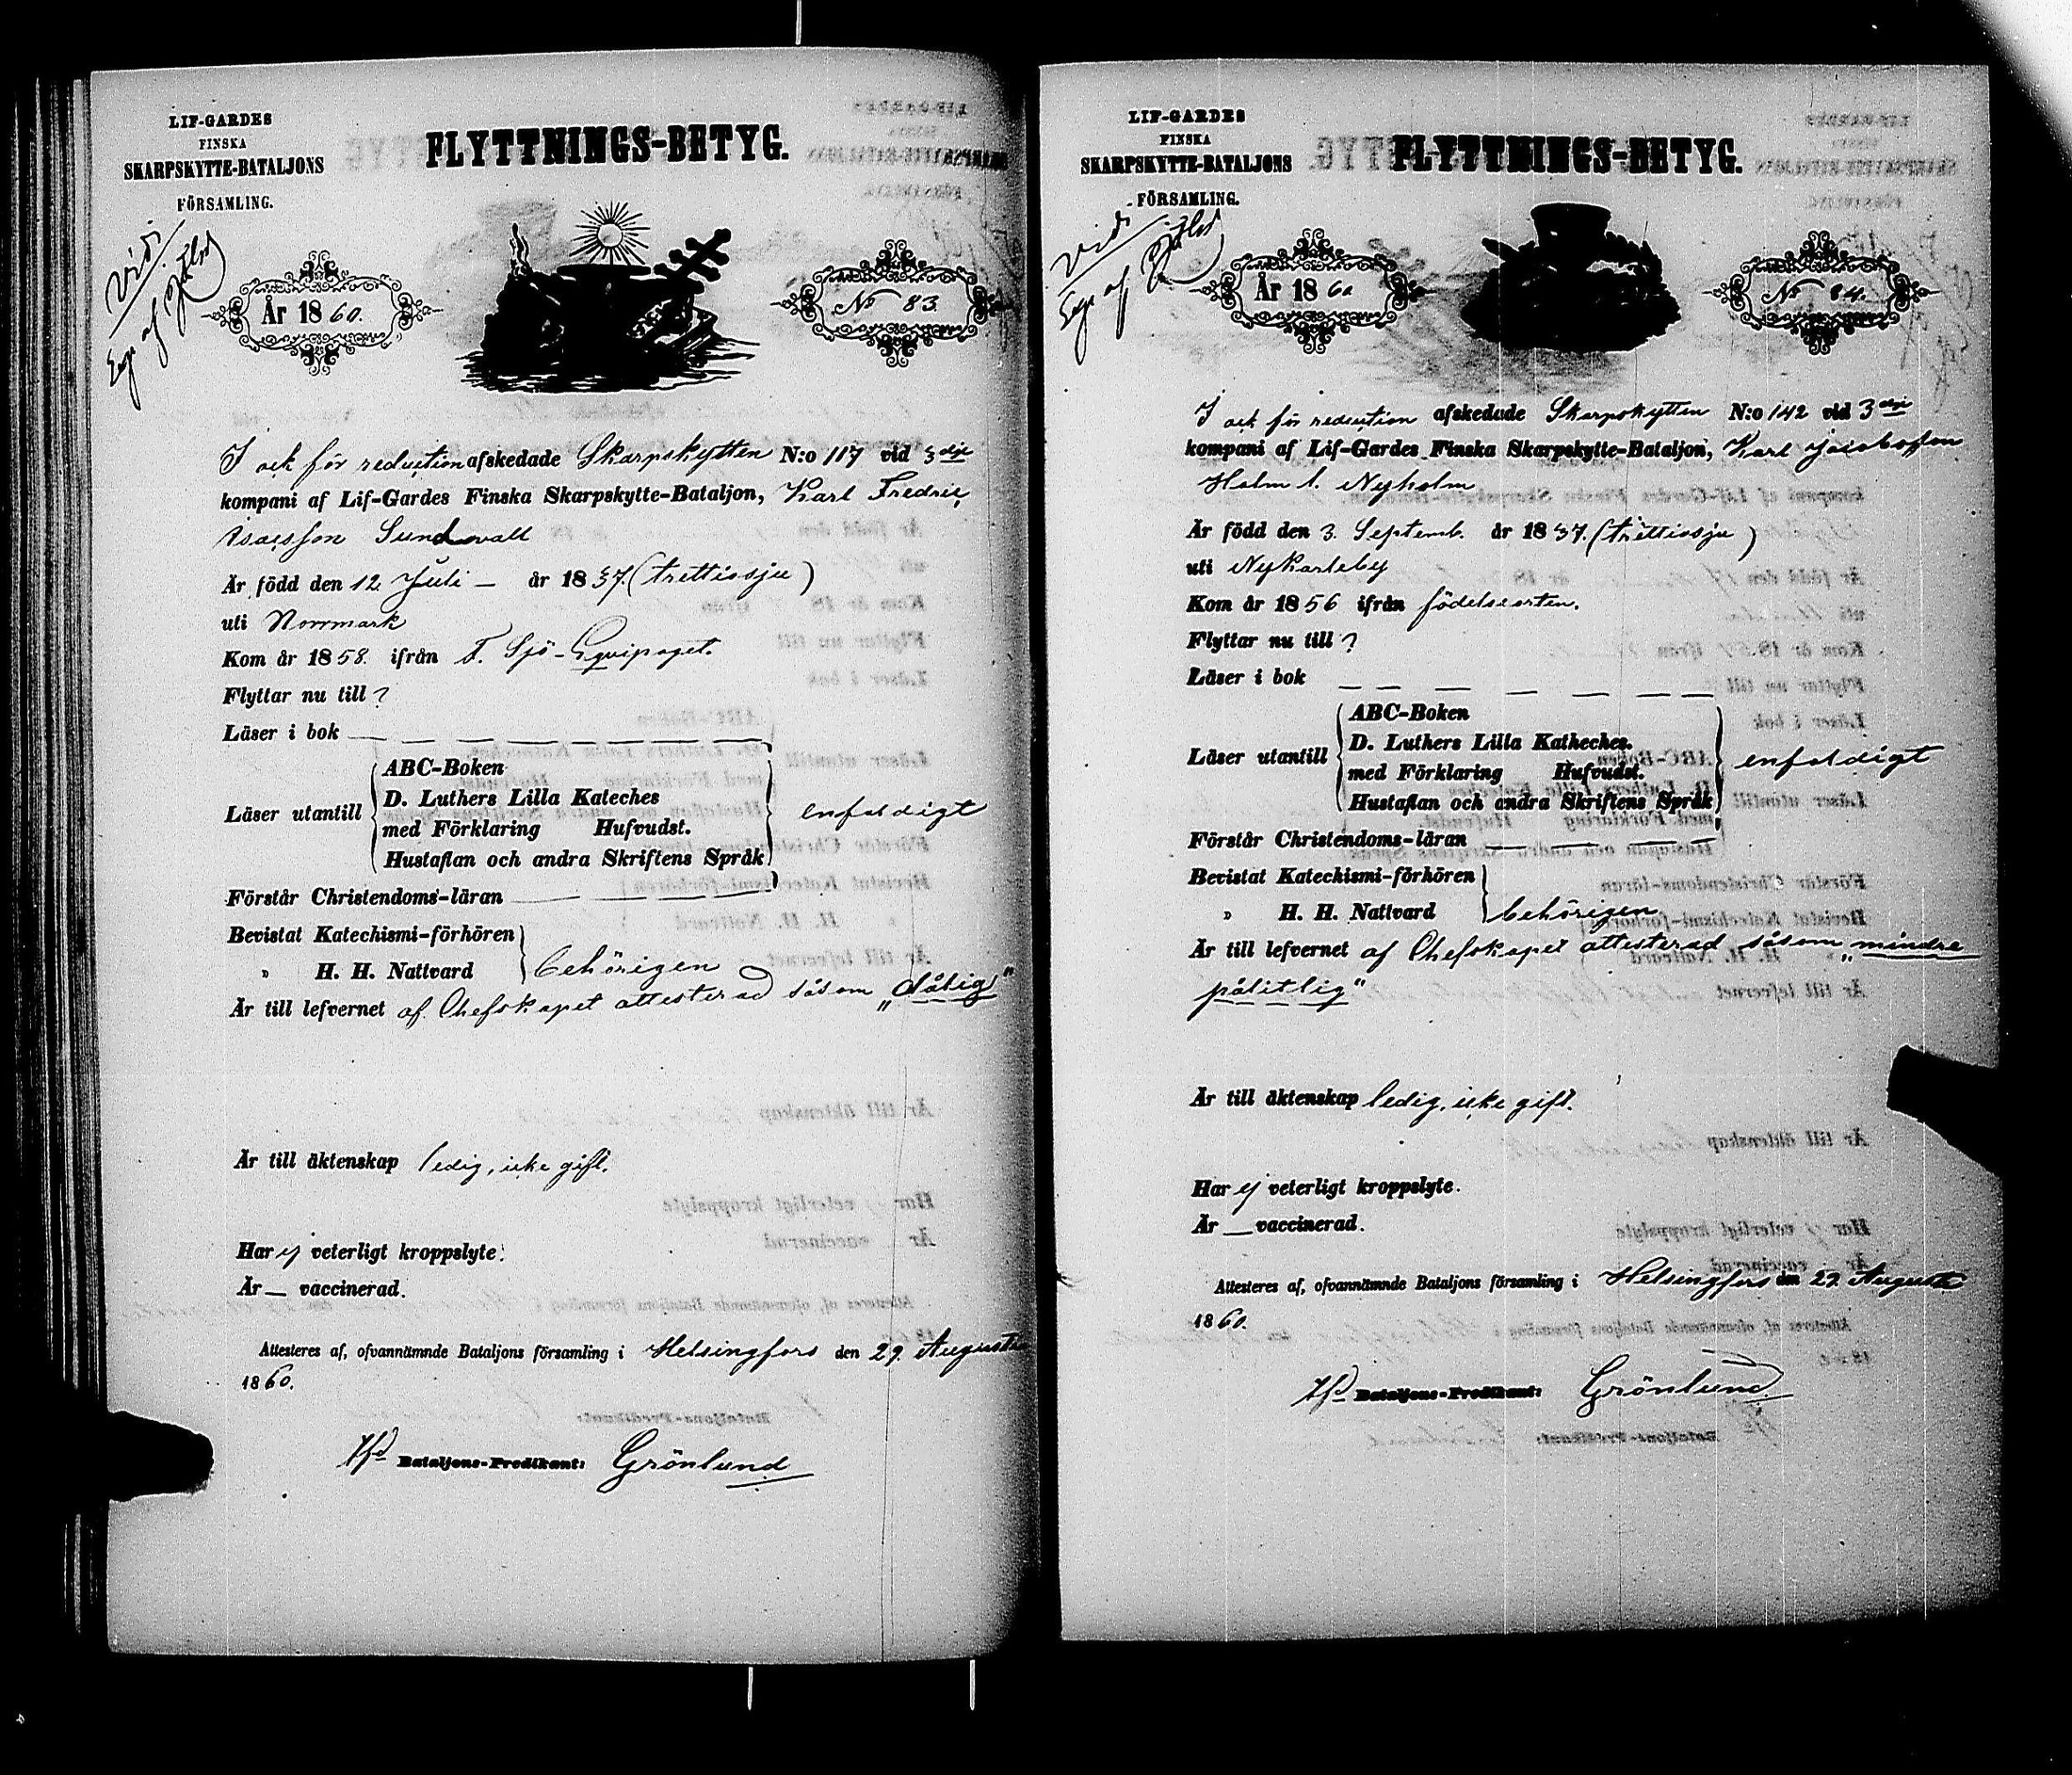 LIF-GARDES
FINSKA
SKARPSKYTTE-BATALJONS
FÖRSAMLING.
FLYTTNINGS-BETYG.
Vidi
År 1860.
No 83.
I ock för reduction afskedade Skarpskytten N:o 117 vid 3dje
kompani af Lif-Gardes Finska Skarpskytte-Bataljon, Karl Fredric
Isacsson Sundwall
Är född den 12 Juli — år 1837. (trettiosju)
uti Norrmark
Kom år 1858. ifrån F. Sjö-Equipaget.
Flyttar nu till ?
Läser i bok
Läser utantill
ABC-Boken
D. Luthers Lilla Kateches
med Förklaring Hufvudst.
Hustaflan och andra Skriftens Språk
enfaldigt
Förstår Christendoms-läran
Bevistat Katechismi-förhören
„ H. H. Nattvard
behörigen
Är till lefvernet af Chefskapet attesterad såsom „dålig"
Är till äktenskap ledig, icke gift.
Har ej veterligt kroppslyte.
Är — vaccinerad.
Attesteres af, ofvannämnde Bataljons församling i Helsingfors den 29. Augusti
1860.
Bataljons-Predikant: Grönlund
LIF-GARDES
FINSKA
SKARPSKYTTE-BATALJONS
FÖRSAMLING.
FLYTTNINGS-BETYG.
Vidi
År 1860
No 84.
I ock för reduction afskedade Skarpskytten N:o 142 vid 3dje
kompani af Lif-Gardes Finska Skarpskytte-Bataljon, Karl Jacobsson
Holm l. Nyholm
Är född den 3. Septemb. år 1837. (trettiosju)
uti Nykarleby
Kom år 1856 ifrån födelseorten.
Flyttar nu till ?
Läser i bok
Läser utantill
ABC-Boken
D. Luthers Lilla Katheches.
med Förklaring Hufvudst.
Hustaflan och andra Skriftens Språk
enfaldigt
Förstår Christendoms-läran
Bevistat Katechismi-förhören
„ H. H. Nattvard
behörigen
Är till lefvernet af Chefskapet attesterad såsom „mindre
pålitlig"
Är till äktenskap ledig, icke gift.
Har ej veterligt kroppslyte.
Är — vaccinerad.
Attesteres af, ofvannämnde Bataljons församling i Helsingfors den 29. Augusti
1860.
Bataljons-Predikant: Grönlund